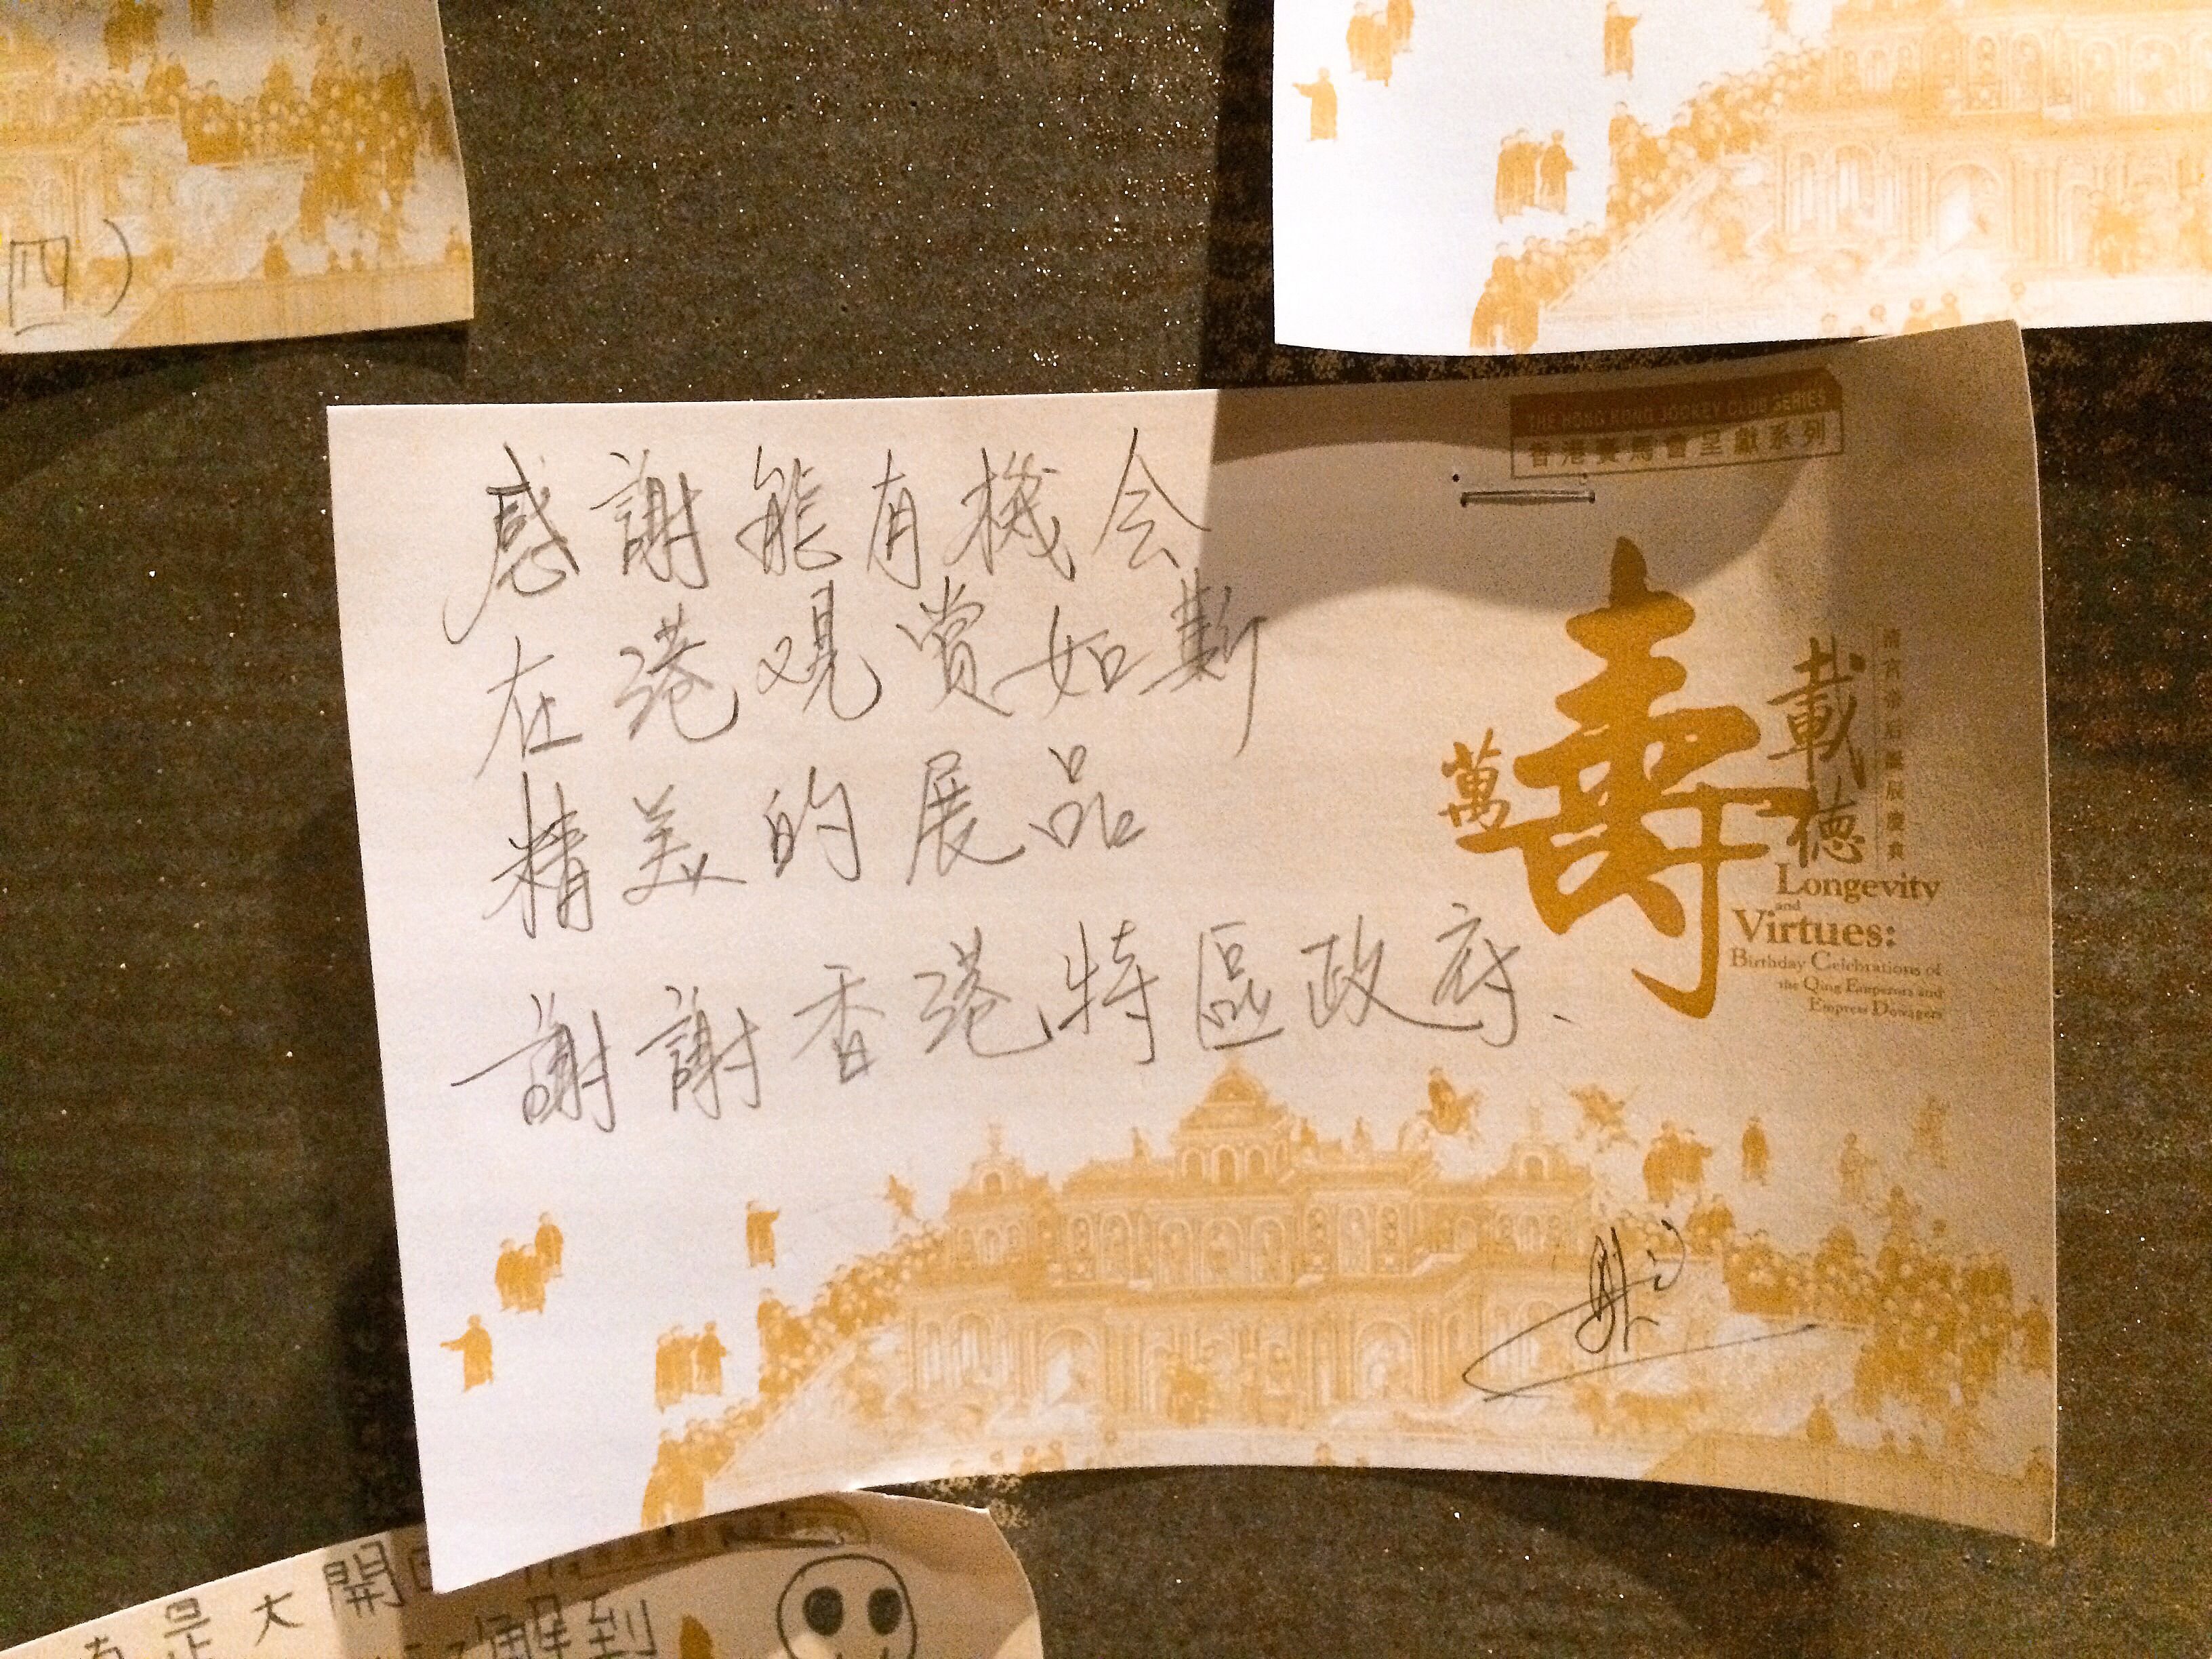 四）
感謝能有機会
在港观賞如斯
精美的展品
謝謝香港特區政府、
THE HONG KONG JOCKEY CLUB SERIES
香港賽馬會呈獻系列
萬
壽
載德
清宮帝后誕辰慶典
Longevity
and
Virtues:
Birthday Celebrations of
the Qing Emperors and
Empress Dowagers
是大開
解到